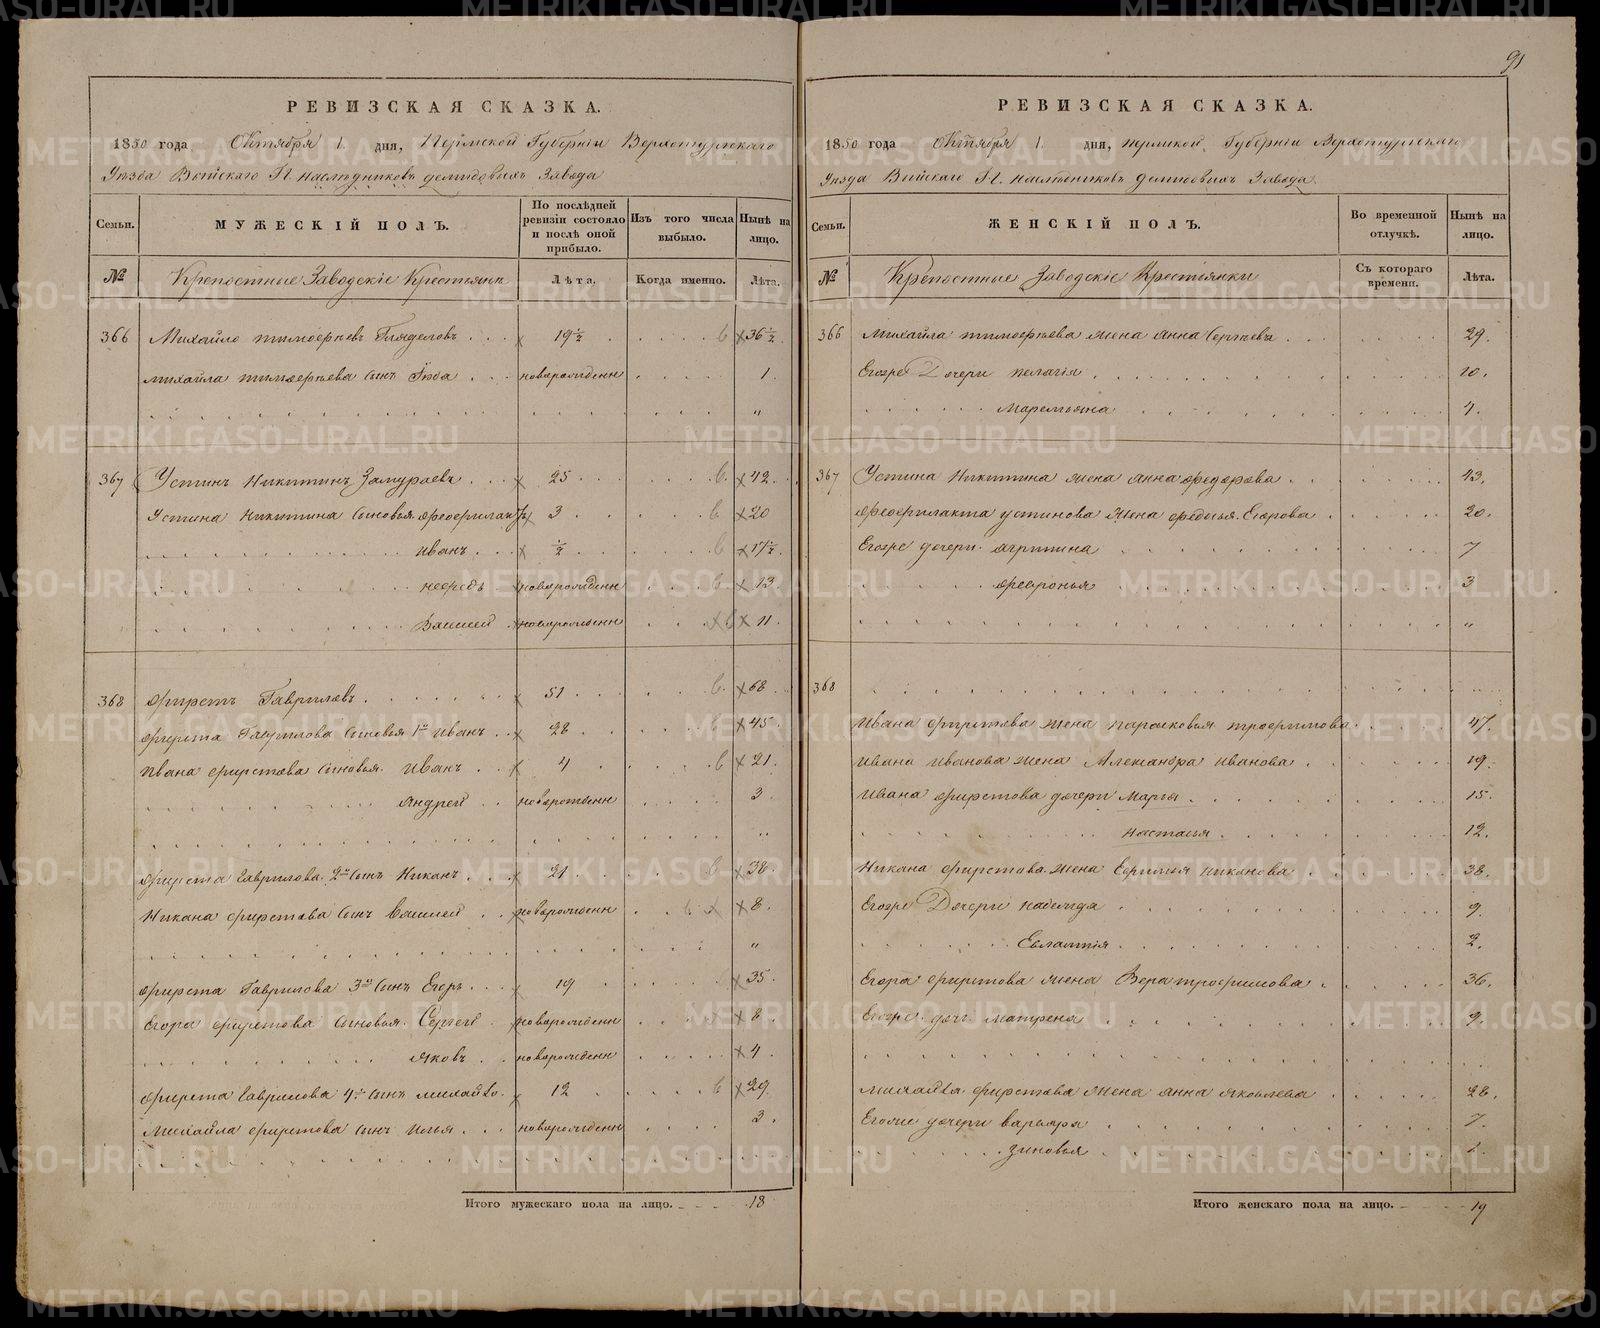 91
РЕВИЗСКАЯ СКАЗКА.
1850 года Октября 1. дня, Пермской Губерніи Верхотурскаго
Уѣзда Выйскаго Г. наслѣдниковъ демидовыхъ Завода
Семьи.
МУЖЕСКІЙ ПОЛЪ.
По послѣдней ревизіи состояло и послѣ оной прибыло.
Изъ того числа выбыло.
Нынѣ на лицо.
№
Крепостные Заводскіе Крестьяне
Лѣта.
Когда именно.
Лѣта.
366 Михайло тимофеевъ Гляделовъ 19½ 36½
михайла тимофеева сынъ Глѣба новорожденн 1.
"
367 Устинъ Никитинъ 25 42
Устина Никитина сыновья феофилактъ 3 20
иванъ ½ 17½
нефедъ новорожденн 13
Василей новорожденн 11
368 фирстъ Гавриловъ 51 68
фирста Гаврилова сыновья 1й иванъ 28 45
ивана фирстова сыновья. иванъ 4 21.
Андрей новорожденн 3
"
фирста Гаврилова 2й сынъ Никанъ 21 38
Никана фирстова сынъ Василей новорожденн 8
"
фирста Гаврилова 3й сынъ Егоръ 19 35
Егора фирстова сыновья. Сергей новорожденн 8
яковъ новорожденн 4
фирста Гаврилова 4й сынъ михайло. 12 29
михайла фирстова сынъ илья новорожденн 3.
Итого мужескаго пола на лицо. 18
РЕВИЗСКАЯ СКАЗКА.
1850 года Октября 1. дня, пермской Губерніи Верхотурскаго
Уѣзда Выйскаго Г. наслѣдниковъ демидовыхъ Завода
Семьи.
ЖЕНСКІЙ ПОЛЪ.
Во временной отлучкѣ.
Нынѣ на лицо.
№
Крепостные Заводскіе Крестьянки
Съ котораго времени.
Лѣта.
366 михайла тимофеева жена анна Сергеева 29.
Егоже Дочери пелагія 10.
маремьяна 4.
367 Устина Никитина жена анна федорова 43.
феофилакта устинова жена федосья Егорова 20.
Егоже дочери. агрипина 7
февронья 3
"
368
ивана фирстова жена парасковья трофимова 47.
ивана иванова жена Александра иванова 19.
ивана фирстова дочери Марья 15.
настасья 12.
Никана фирстова жена Ефимья никонова 38.
Егоже Дочери надежда 9
Евлампія 2.
Егора фирстова жена Вера трофимова 36.
Егоже дочь матрена 9.
михайла фирстова жена анна яковлева 28.
Егоже дочери варвара 7.
зиновья 1
Итого женскаго пола на лицо. 19
METRIKI.GASO-URAL.RU